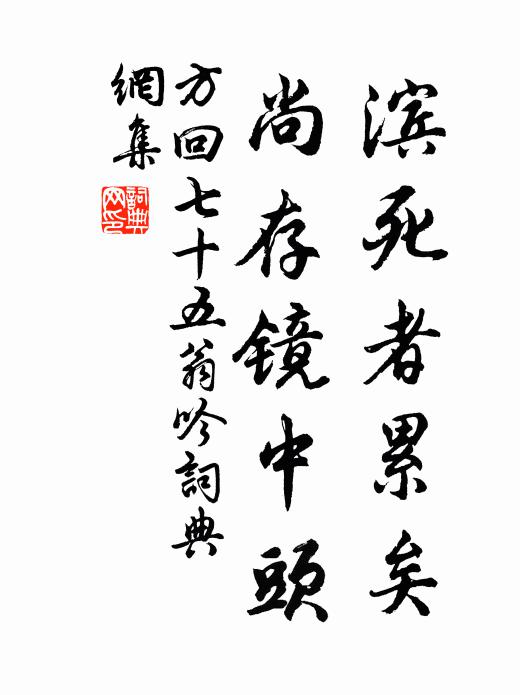 滨死者累矣
尚存镜中頭
方回七十五翁吟詞典
網集
詞典
网印